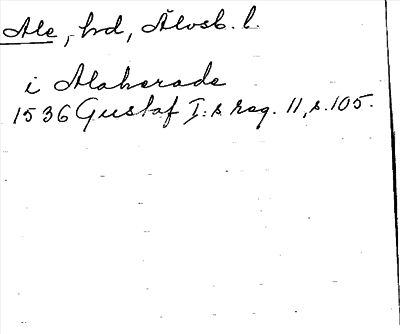 Ale, hd, Älvsb. l.
i Alaherade
1536 Gustaf I:s reg. 11, s. 105.